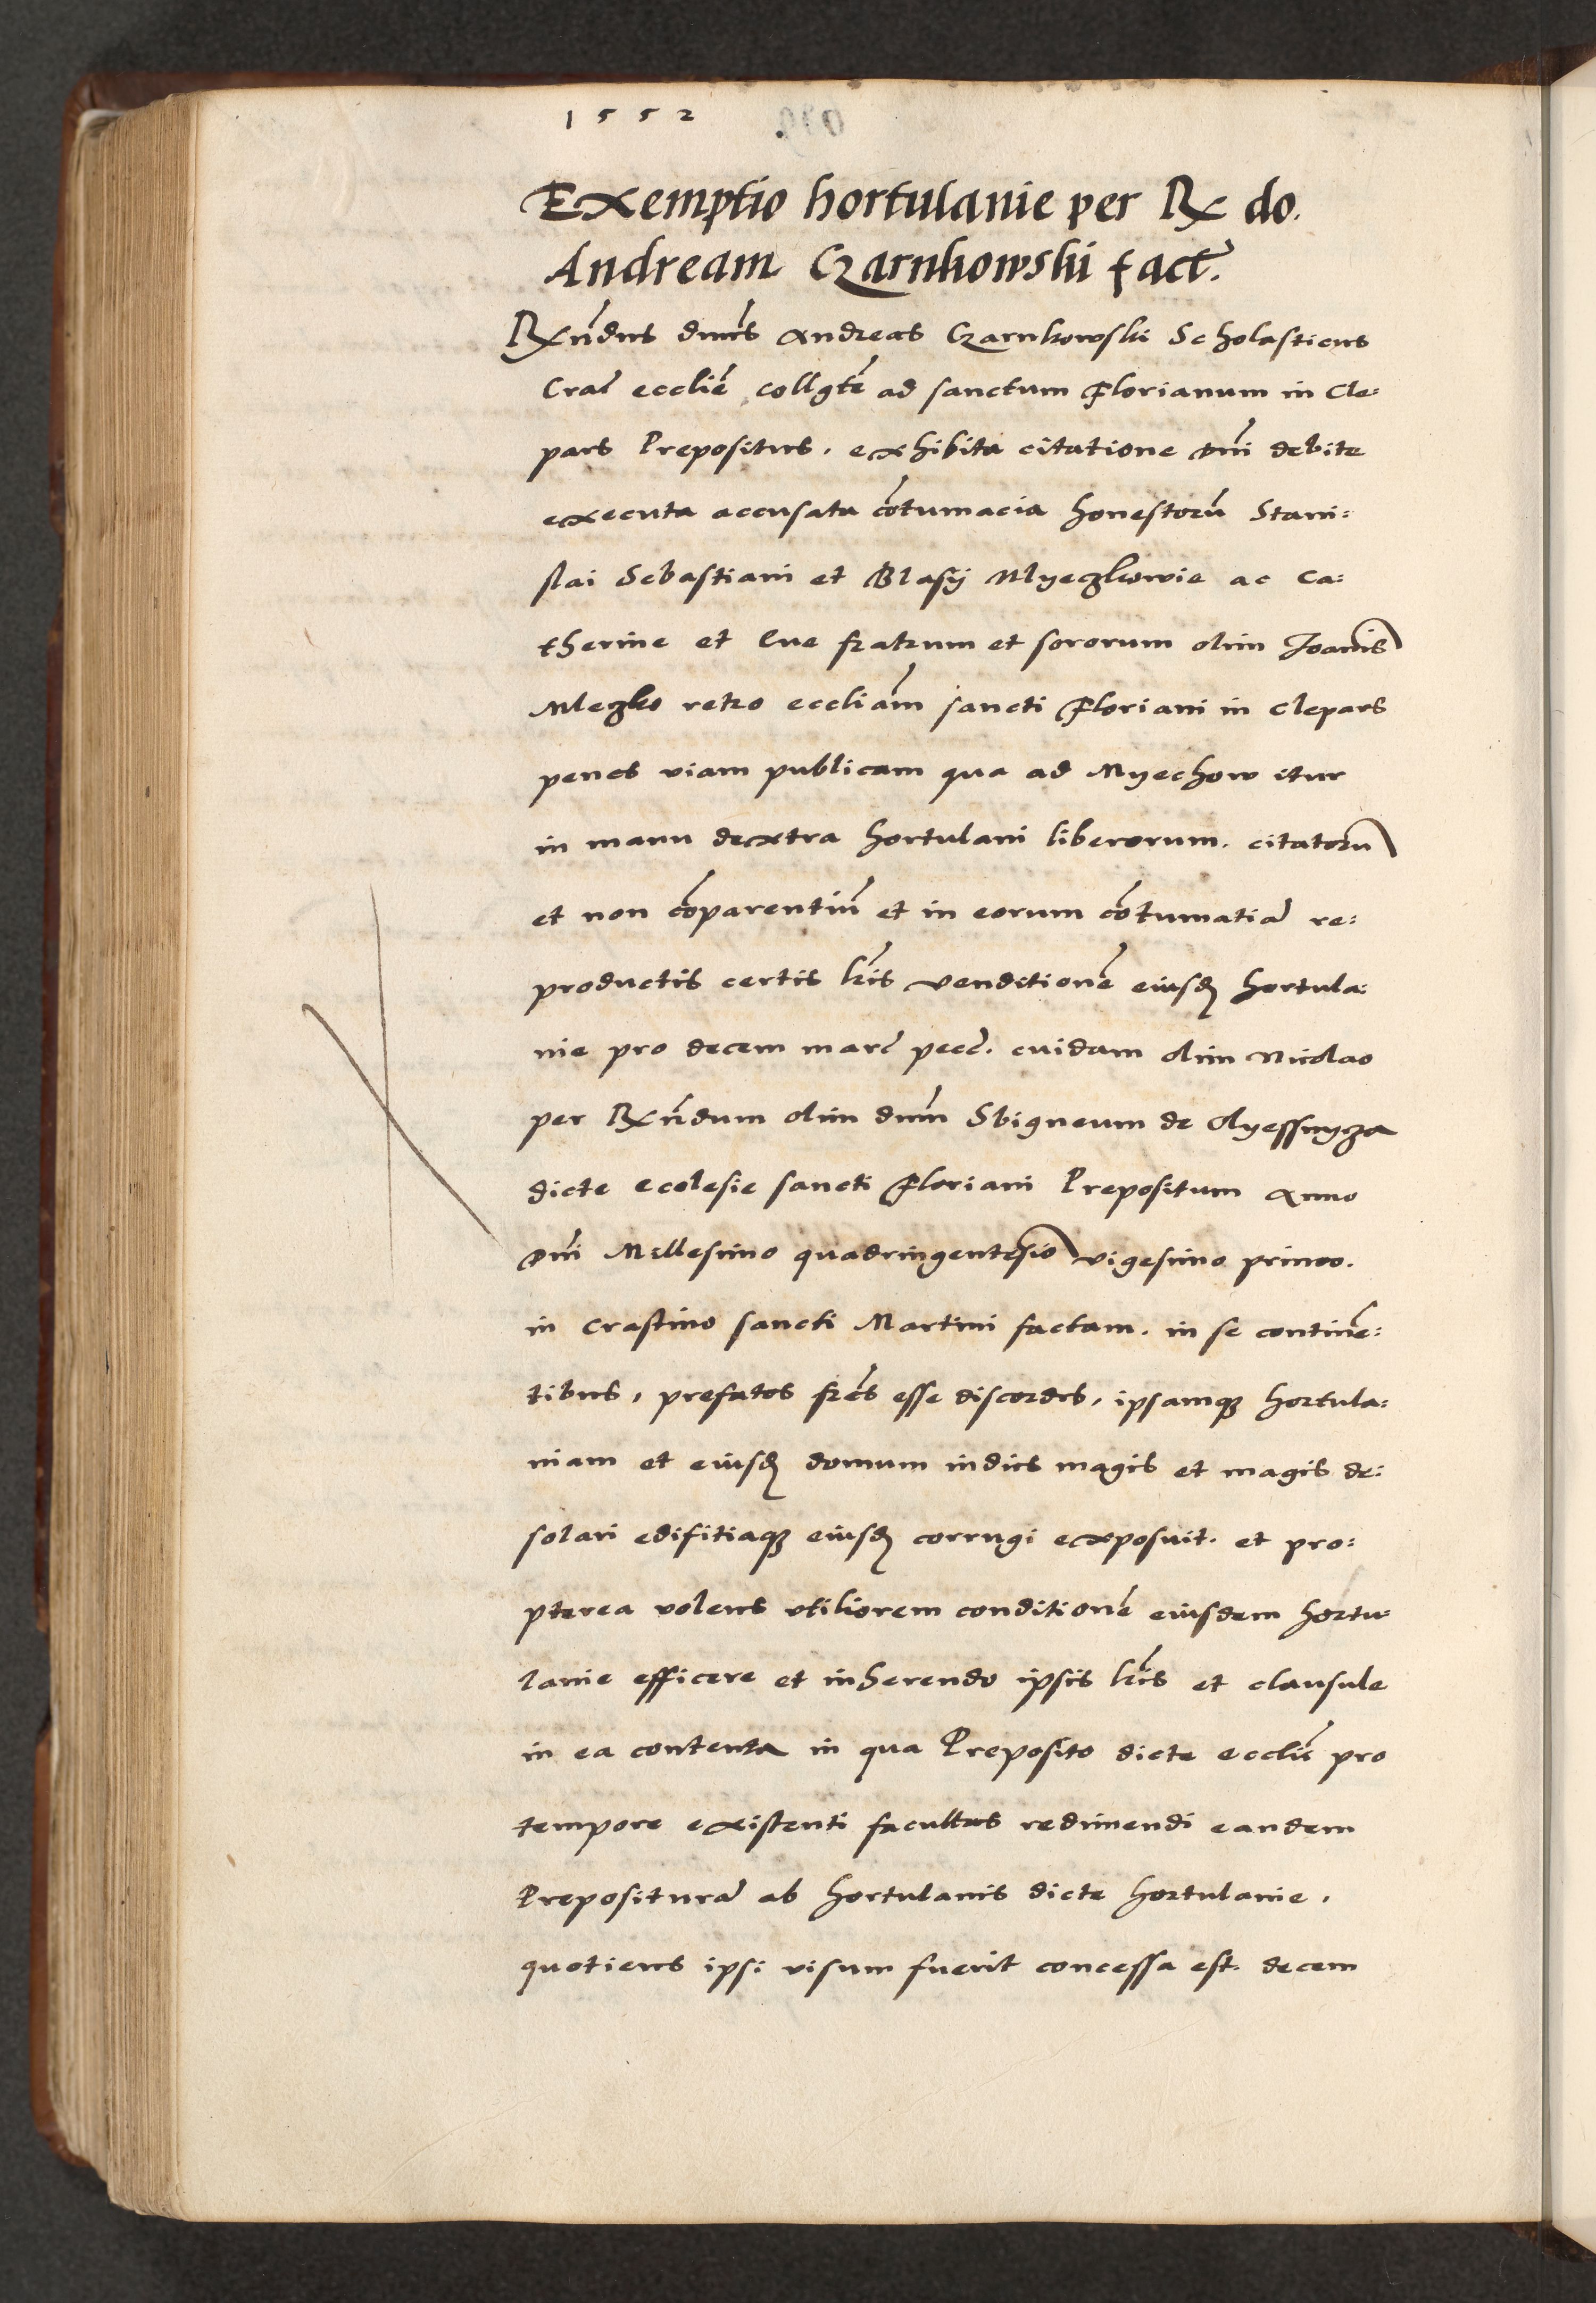 1552
Exemptio hortulanie per Rx do.
Andream Czarnkowski fact.
Rxndus dnus Andreas Czarnkowski Scholasticus
Crac ecclie collgte ad sanctum Florianum in Cle:
pars Prepositus. exhibita citatione dni debite
executa accusata cotumacia honestoru Stani:
slai Sebastiani et Blasij Mlyeczkowie ac Ca:
therine et Eve fratrum et sororum olim Joanis
Mleczko retro eccliam sancti Floriani in Clepars
penes viam publicam qua ad Myechow itur
in manu dextra hortulani liberorum. citatoru
et non coparentiu et in eorum cotumatia re:
productis certis lris venditione eiusd hortula:
nie pro decem marc pecc. cuidam olim Nicolao
per Rxndum olim dnm Sbigneum de Olyessnycza
dicte ecclesie sancti Floriani Prepositum anno
dni Millesimo quadringentesio vigesimo primo.
in crastino sancti Martini factam. in se contine:
tibus, prefatos fres esse discordes, ipsamq hortula:
niam et eiusd domum indies magis et magis de:
solari edifitiaq eiusd corrugi exposuit. et pro:
pterea volens utiliorem conditione eiusdem hortu:
lanie efficere et inherendo ipsis lris et clausule
in ea contenta in qua Preposito dicte ecclie pro
tempore existenti facultas redimendi eandem
Prepositura ab hortulanis dicte hortulanie,
quotiens ipsi visum fuerit concessa est. decem